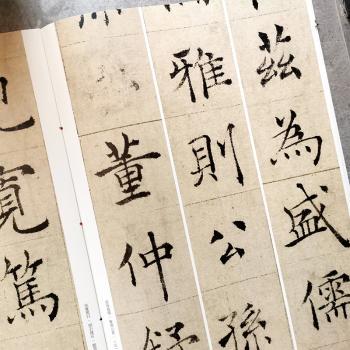 茲為盛儒
雅則公孫
董仲舒
寬篤